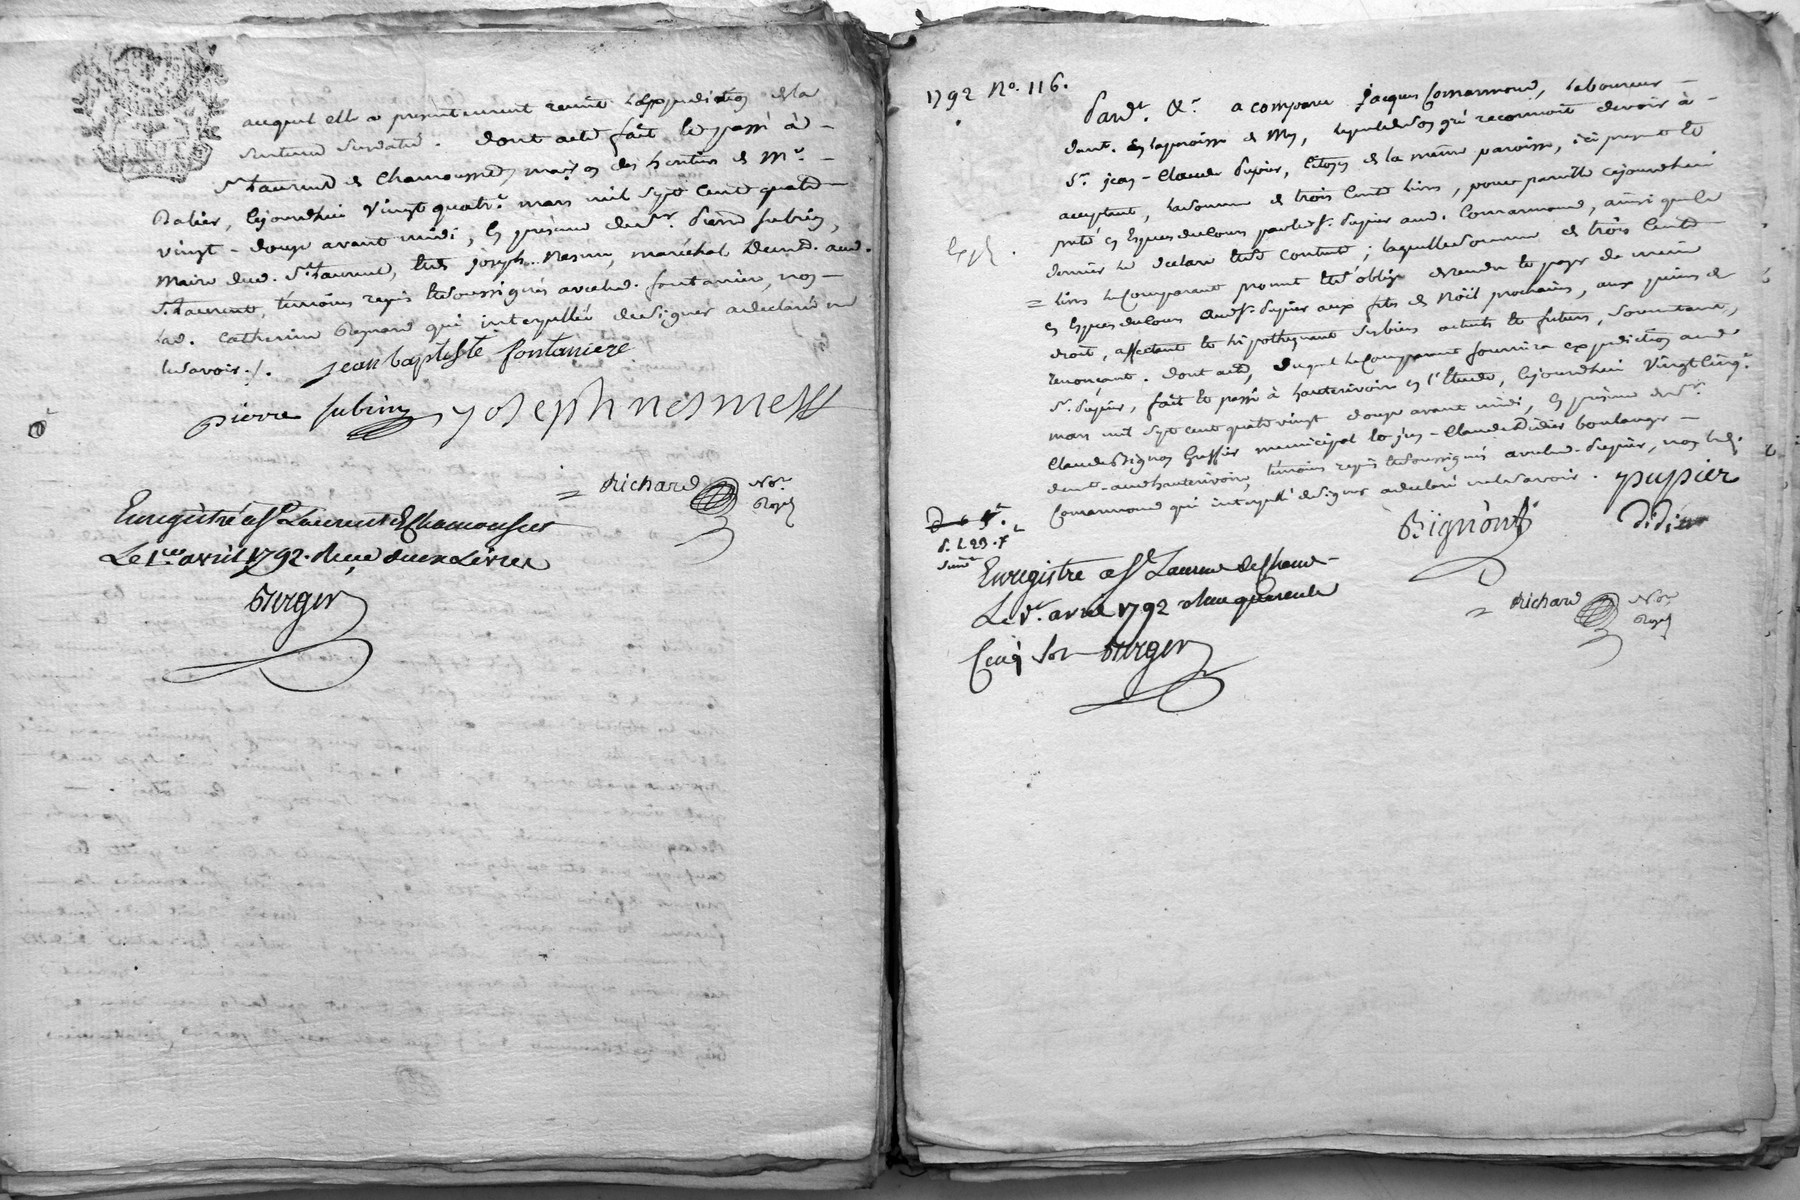 auquel elle a présentement remit l'expédition de la
sentence susdatée. dont acte fait et passé à
St. Laurent de Chamousset, maison des héritiers de Mr.
cejourdhui vingt quatre. mars mil sept cent quatre
vingt-douze avant midi, en présence de Sr. Pierre subrin,
Maire dud. St. Laurent, et de joseph nesme, maréchal Demt. aud.
St. Laurent, témoins requis et soussignés avec led. fontaniere, non
lad. Catherine qui interpellée de signer a déclaré ne
le savoir./.
jean baptiste fontaniere
pierre subrin joseph nesme
= Richard Nore. Royal
Enregistré a St. Laurent de Chamousset
Le 1er avril 1792. Reçu deux Livres
1792 No. 116.
Pardt. &c. a comparu Jacques Comarmond, laboureur
demt. en la paroisse de lequel de son gré reconnoit devoir à
Sr. jean-Claude pupier, citoyen de la même paroisse, ici present et
acceptant, la somme de trois cents livres, pour pareille cejourdhui
prêté en Espèces de Cours par led. Sr. pupier aud. Comarmond, ainsi que le
dernier le déclare et s'en contente; laquelle somme de trois Cents
= livres le comparant promet et s'oblige de rendre et payer de même
en Espèces de Cours aud. Sr. pupier aux fêtes de Noël prochaines, aux peines de
droit, affectant et hipothéquant ses biens actuels et futurs, soumettant,
renonçant. dont acte, duquel le Comparant fournira expédition aud.
Sr. pupier, fait et passé à hauterivoire en l'Etude, cejourdhui vingt Cinq.
mars mil sept cent quatre vingt douze avant midi, en présence de Sr.
Claude Bignon Greffier municipal et jean-Claude Didier boulanger
demt. aud. hauterivoire, témoins requis et soussignés avec led. pupier, non led.
Comarmond qui interpellé de signer a déclaré ne le savoir. pupier
Bignon Didier
Enregistré a St. Laurent de Cham-
avril 1792 Reçu quarante
Cinq sols
= Richard Nore. Royal